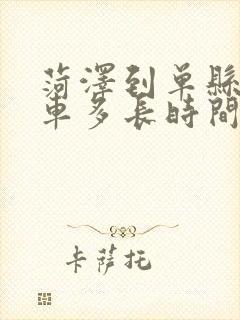 菏澤到单縣
車多長時間
卡薩托